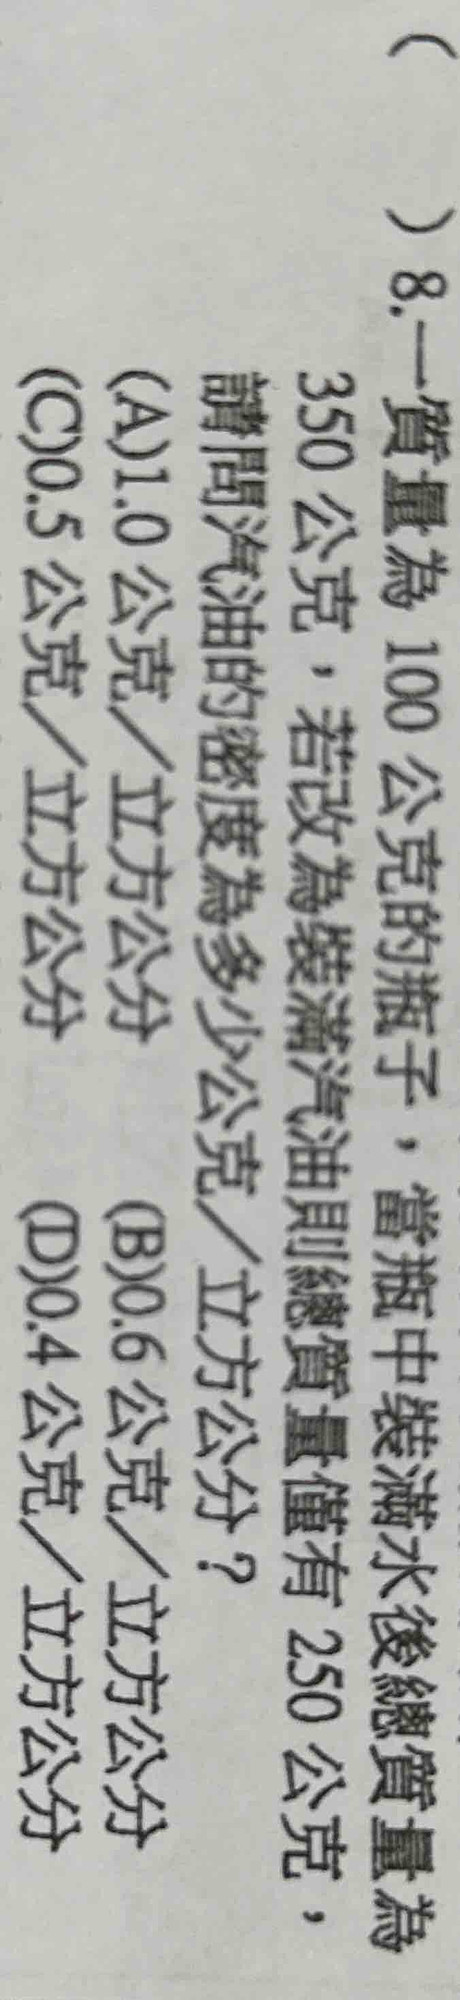 (　　) 8.一質量為 100 公克的瓶子，當瓶中裝滿水後總質量為
350 公克，若改為裝滿汽油則總質量僅有 250 公克，
請問汽油的密度為多少公克／立方公分？
(A)1.0 公克／立方公分　(B)0.6 公克／立方公分
(C)0.5 公克／立方公分　(D)0.4 公克／立方公分